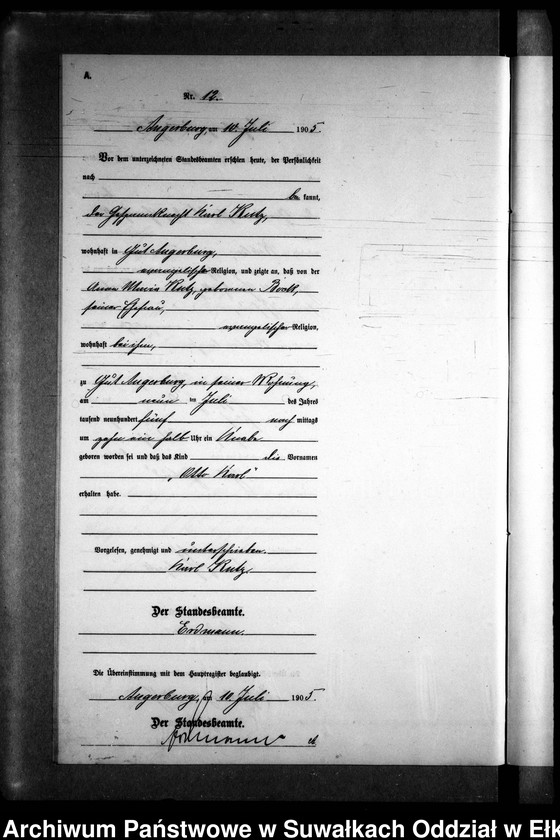 A.
Nr. 12.
Angerburg, am 10. Juli 1905.
Vor dem unterzeichneten Standesbeamten erschien heute, der Persönlichkeit
nach
be kannt,
der Gespannknecht Karl Kutz,
wohnhaft in Gut Angerburg,
evangelischer Religion, und zeigte an, daß von der
Anna Maria Kutz, geborenen Boeck,
seiner Ehefrau,
evangelischer Religion,
wohnhaft bei ihm,
zu Gut Angerburg, in seiner Wohnung,
am neun ten Juli des Jahres
tausend neunhundert fünf nach mittags
um zehn ein halb Uhr ein Knabe
geboren worden sei und daß das Kind die Vornamen
„Otto Karl"
erhalten habe.
Vorgelesen, genehmigt und unterschrieben.
Karl Kutz.
Der Standesbeamte.
Erdmann.
Die Übereinstimmung mit dem Hauptregister beglaubigt.
Angerburg, am 10. Juli 1905.
Der Standesbeamte.
Erdmann
Archiwum Państwowe w Suwałkach Oddział w Ełk